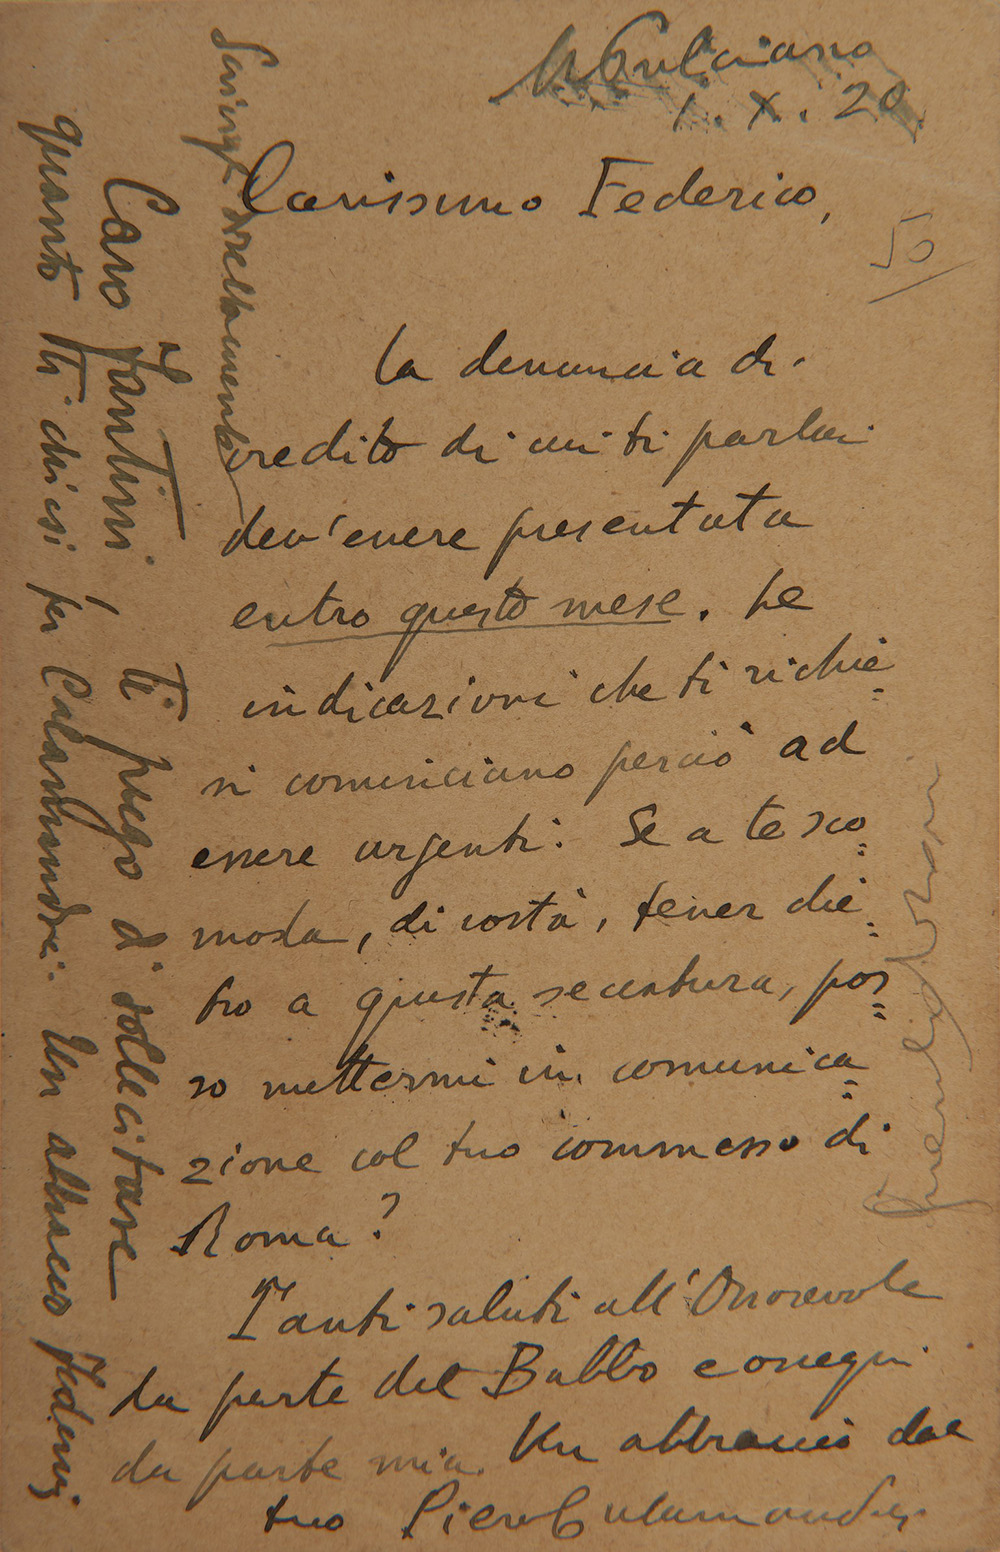 MPulciano
1. X. 20
Carissimo Federico,
50
la denuncia di
credito di cui ti parlai
dev'essere presentata
entro questo mese. Le
indicazioni che ti richie=
si cominciano perciò ad
essere urgenti. Se a te sco=
moda, di costà, tener die=
tro a questa seccatura, pos=
so mettermi in comunica=
zione col tuo commesso di
Roma?
Tanti saluti all'Onorevole
da parte del Babbo e ossequi
da parte mia. Un abbraccio dal
tuo Piero Calamandrei
Caro Fantini, ti prego di sollecitare
quanto ti chiesi per Calamandrei. Un abbraccio Federici
Scrivigli direttamente